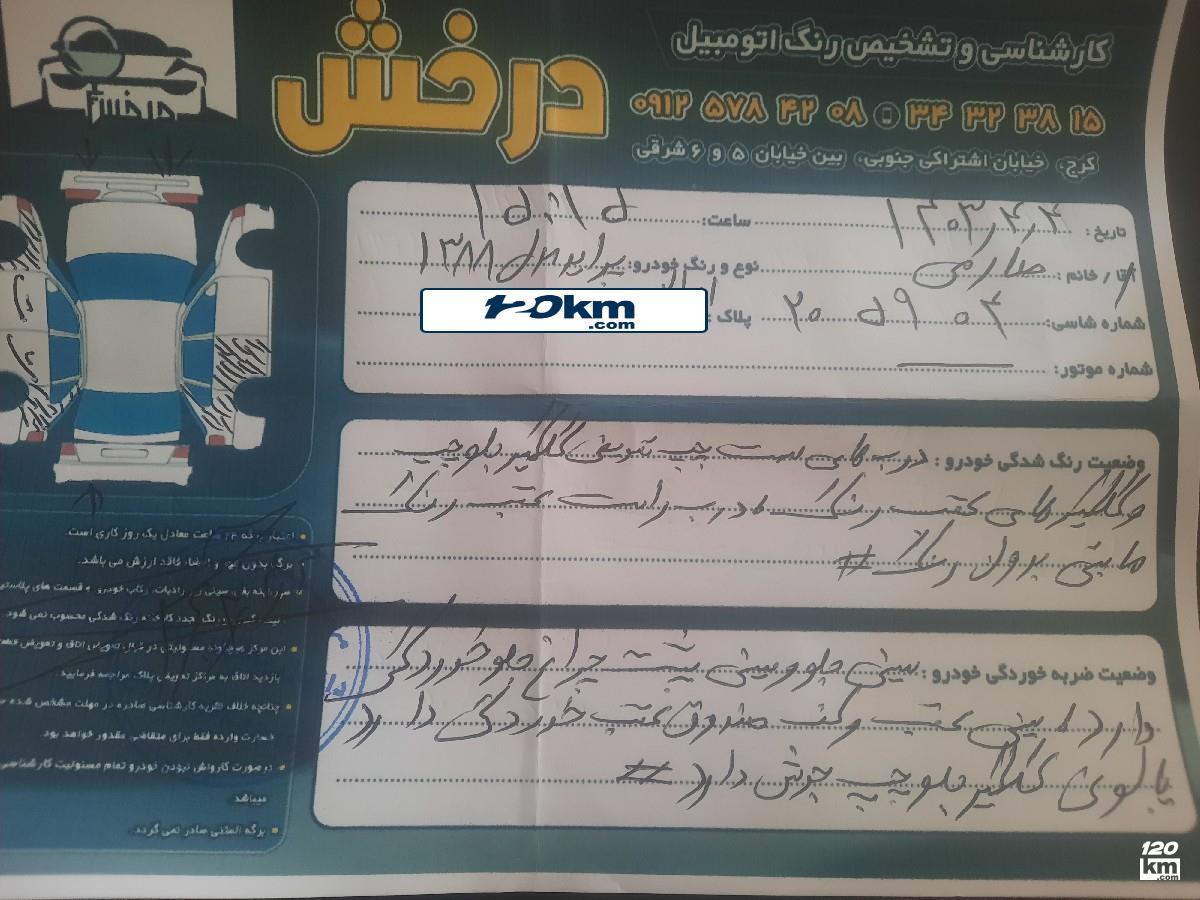 کارشناسی و تشخیص رنگ اتومبیل
درخش
درخش
۰۹۱۲ ۵۷۸ ۴۲ ۰۸ ۳۴ ۳۲ ۳۸ ۱۵
کرج، خیابان اشتراکی جنوبی، بین خیابان ۵ و ۶ شرقی
تاریخ: ۱۴۰۳/۴/۴ ساعت:
آقا / خانم: صارمی نوع و رنگ خودرو: پراید ۱۳۸۸
شماره شاسی: ۲۰۵۹۰۴ پلاک:
120km
.com
شماره موتور:
وضعیت رنگ شدگی خودرو: درب های سمت چپ تعویض گلگیر جلو چپ
و گلگیر های عقب رنگ درب راست عقب رنگ
مابقی بدون رنگ #
وضعیت ضربه خوردگی خودرو: سینی جلو و سینی پشت چراغ جلو خوردگی
دارد سینی عقب و کف صندوق عقب خوردگی دارد
پالونی گلگیر جلو چپ جوش دارد #
ساعت معادل یک روز کاری است.
برگه بدون مهر و امضاء فاقد ارزش می باشد.
این مرکز هیچگونه مسئولیتی در قبال تعویض اتاق و تعویض قطعات
بازدید اتاق به مرکز تعویض پلاک مراجعه فرمایید.
چنانچه خلاف نظریه کارشناسی صادره در مهلت مشخص شده
خسارت وارده فقط برای متقاضی مقدور خواهد بود
در صورت کارواش نبودن خودرو تمام مسئولیت کارشناسی
میباشد
برگه المثنی صادر نمی گردد.
120
km
.com